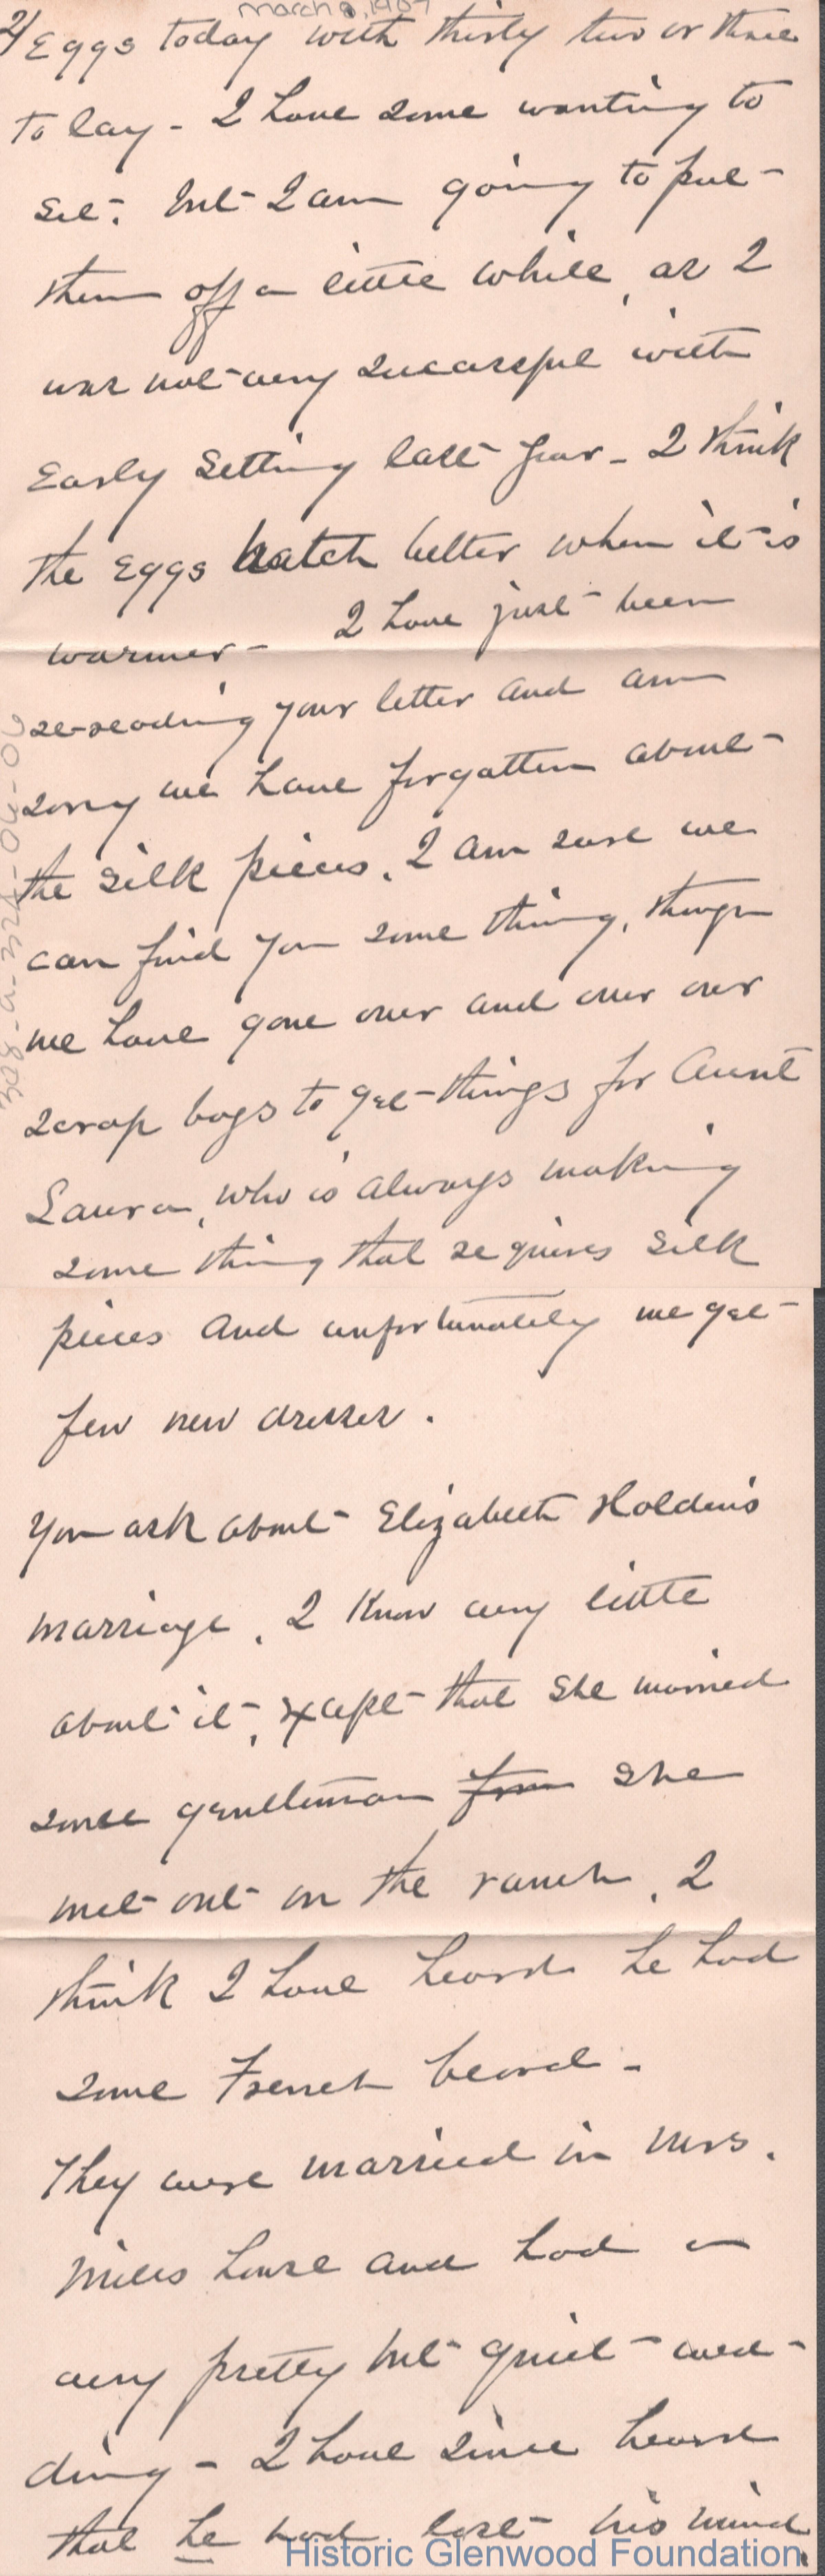 March , 1907
2/ Eggs today with thirty two or three
to lay - I have some wanting to
set. but I am going to put
them off a little while, as I
was not very successful with
Early Setting last year - I think
the Eggs hatch better when it is
warmer - I have just been
re-reading your letter and am
sorry we have forgotten about
the silk pieces. I am sure we
can find you some thing, though
we have gone over and over our
scrap bags to get things for Aunt
Laura, who is always making
some thing that requires silk
pieces and unfortunately we get
few new dresses.
You ask about Elizabeth Holden's
marriage. I know very little
about it, except that she married
some gentleman from she
met out on the ranch. I
think I have heard he had
some French beard -
They were married in Mrs.
Miles house and had a
very pretty but quiet wed-
ding - I have since heard
that he had lost his mind
Historic Glenwood Foundation